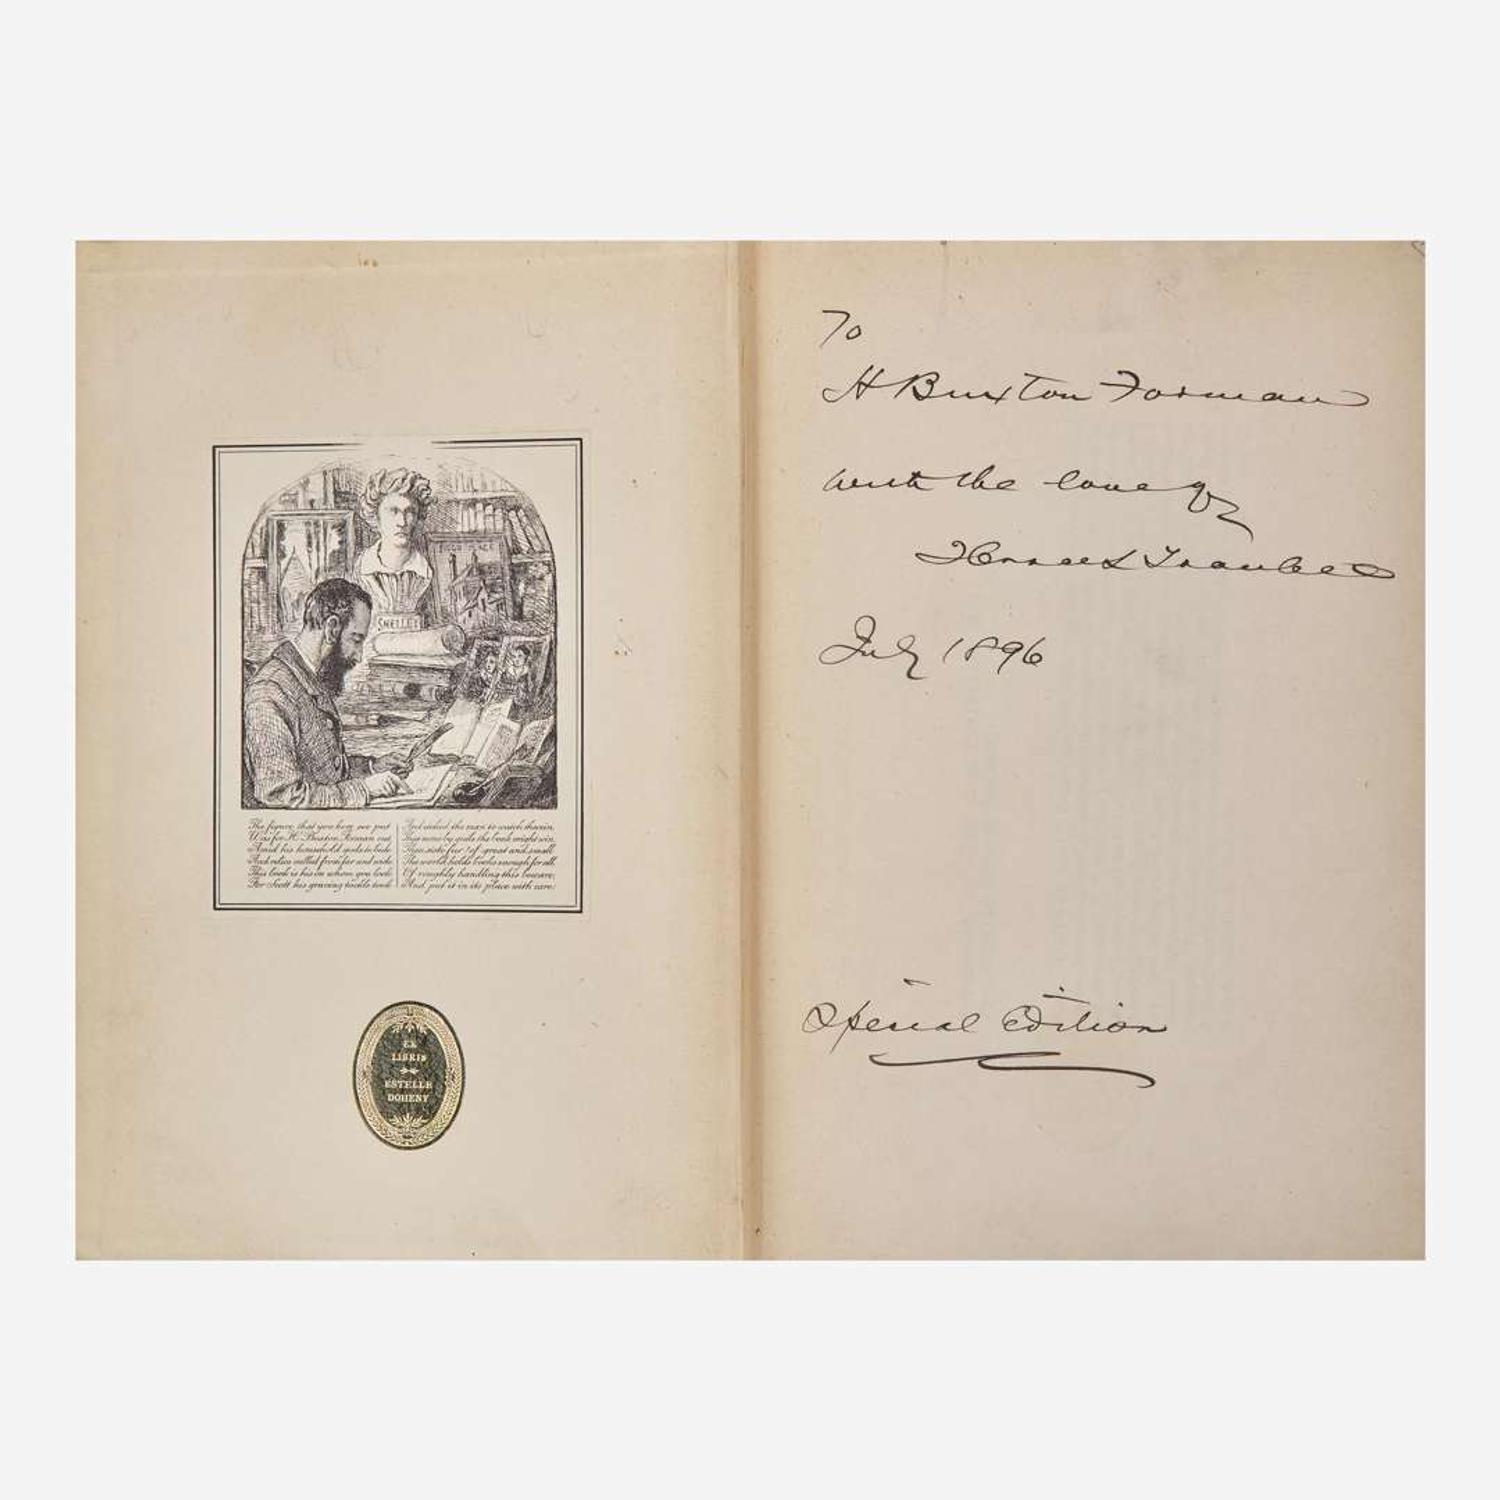 SHELLEY
The figure that you here see put
It was for H. Buxton Forman cut
Amid his household gods to bide
And relics culled from far and wide
This book is his on whom you look
For Scott his graving tackle took
And etched the man to watch therein
This nook by gods the book might win
Then sith for of great and small
The world holds books enough for all
Of roughly handling this beware
And put it in its place with care
EX
LIBRIS
ESTELLE
DOHENY
To
H Buxton Forman
with the love of
Horace L Traubel
July 1896
Special Edition